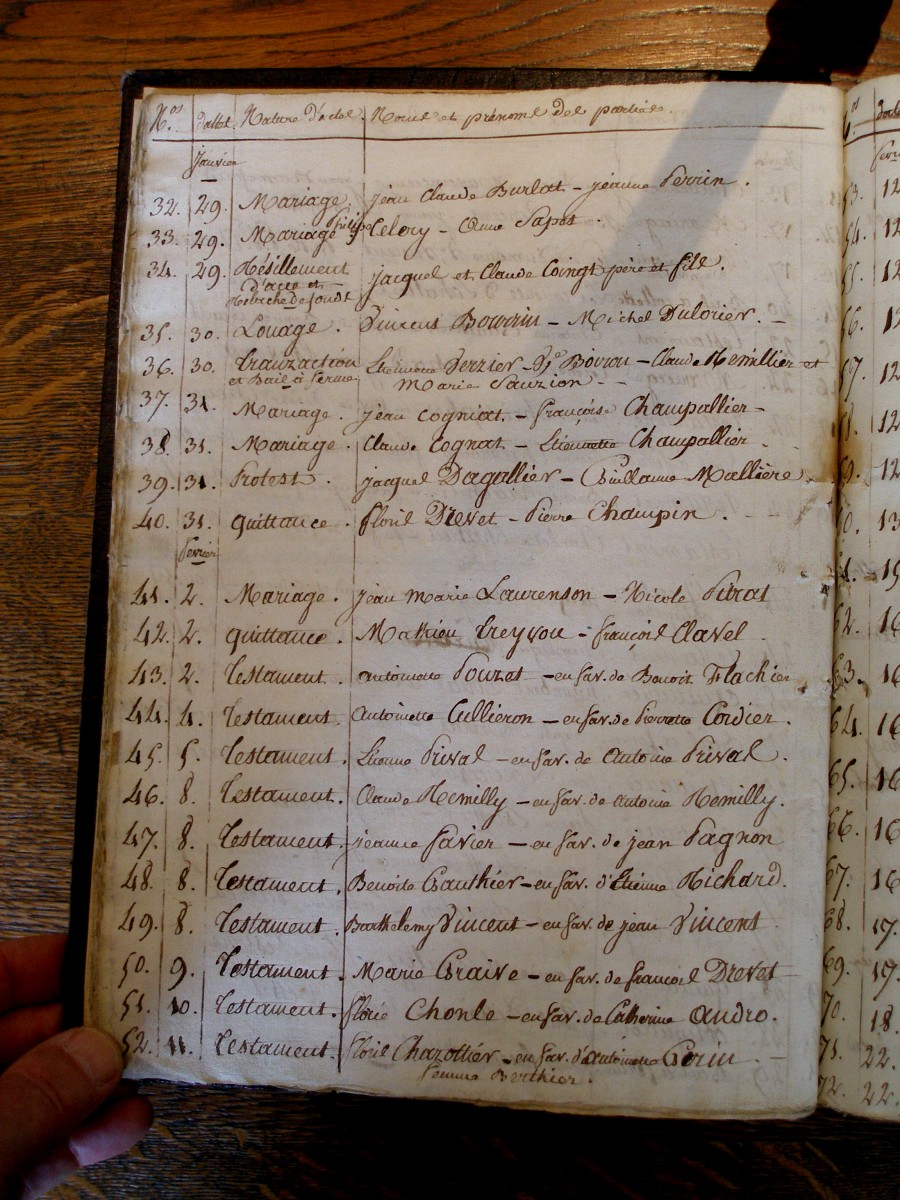 N.os dattes. Nature d'actes. Noms et prénoms des parties.
janvier
32. 29. Mariage. jean Claude Burlat - jeanne Perrin.
33. 29. Mariage philipe Celery - Anne Sapet.
34. 29. Résillement jacques et Claude Coingt père et fils.
d'acte et
Relache de fonds
35. 30. Louage. Vincent Bourrin - Michel Dulorier.
36. 30. tranzaction Etiennette Verzier Vve Boiron - Claude Remillier et
et Bail à ferme Marie Sauzion.
37. 31. Mariage. jean Cogniat - françoise Champallier
38. 31. Mariage. Claude Cognat - Etiennette Champallier.
39. 31. Protest. jacques Dagallier - Guillaume Mallière
40. 31. quittance. floris Drevet - Pierre Champin.
fevrier
41. 2. Mariage. jean marie Laurenson - Nicole Pitrat
42. 2. quittance. Mathieu treyvou - françois Clavel.
43. 2. testament. antoinette Pouzet - en fav. de Benoit Flachier
44. 4. testament. antoinette Cullieron - en fav. de Pierrette Cordier.
45. 5. testament. Etienne Prival - en fav. de antoine Prival.
46. 8. testament. Claude Remilly - en fav. de antoine Remilly.
47. 8. testament. jeanne favier - en fav. de jean Pagnon
48. 8. testament. Benoite Gauthier - en fav. d'Etienne Richard.
49. 8. testament. Barthelemy Vincent - en fav. de jean Vincent
50. 9. testament. Marie Graive - en fav. de françois Drevet
51. 10. testament. florie Chonle - en fav. de Catherine andro.
52. 11. testament. floris Chazottier - en fav. d'antoinette Gerin
femme Berthier.